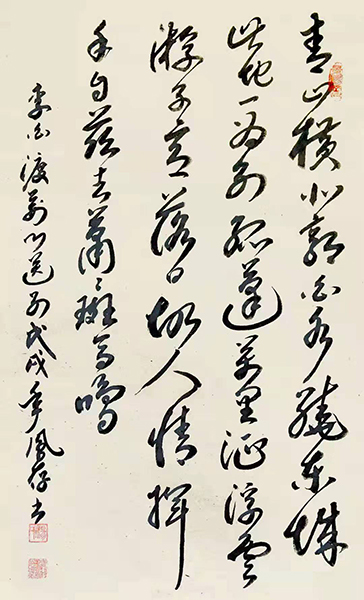 青山横北郭白水绕东城
此地一为别孤蓬万里征浮云
游子意落日故人情挥
手自兹去萧〻斑马鸣
李白渡荆门送别戊戌年凤存书